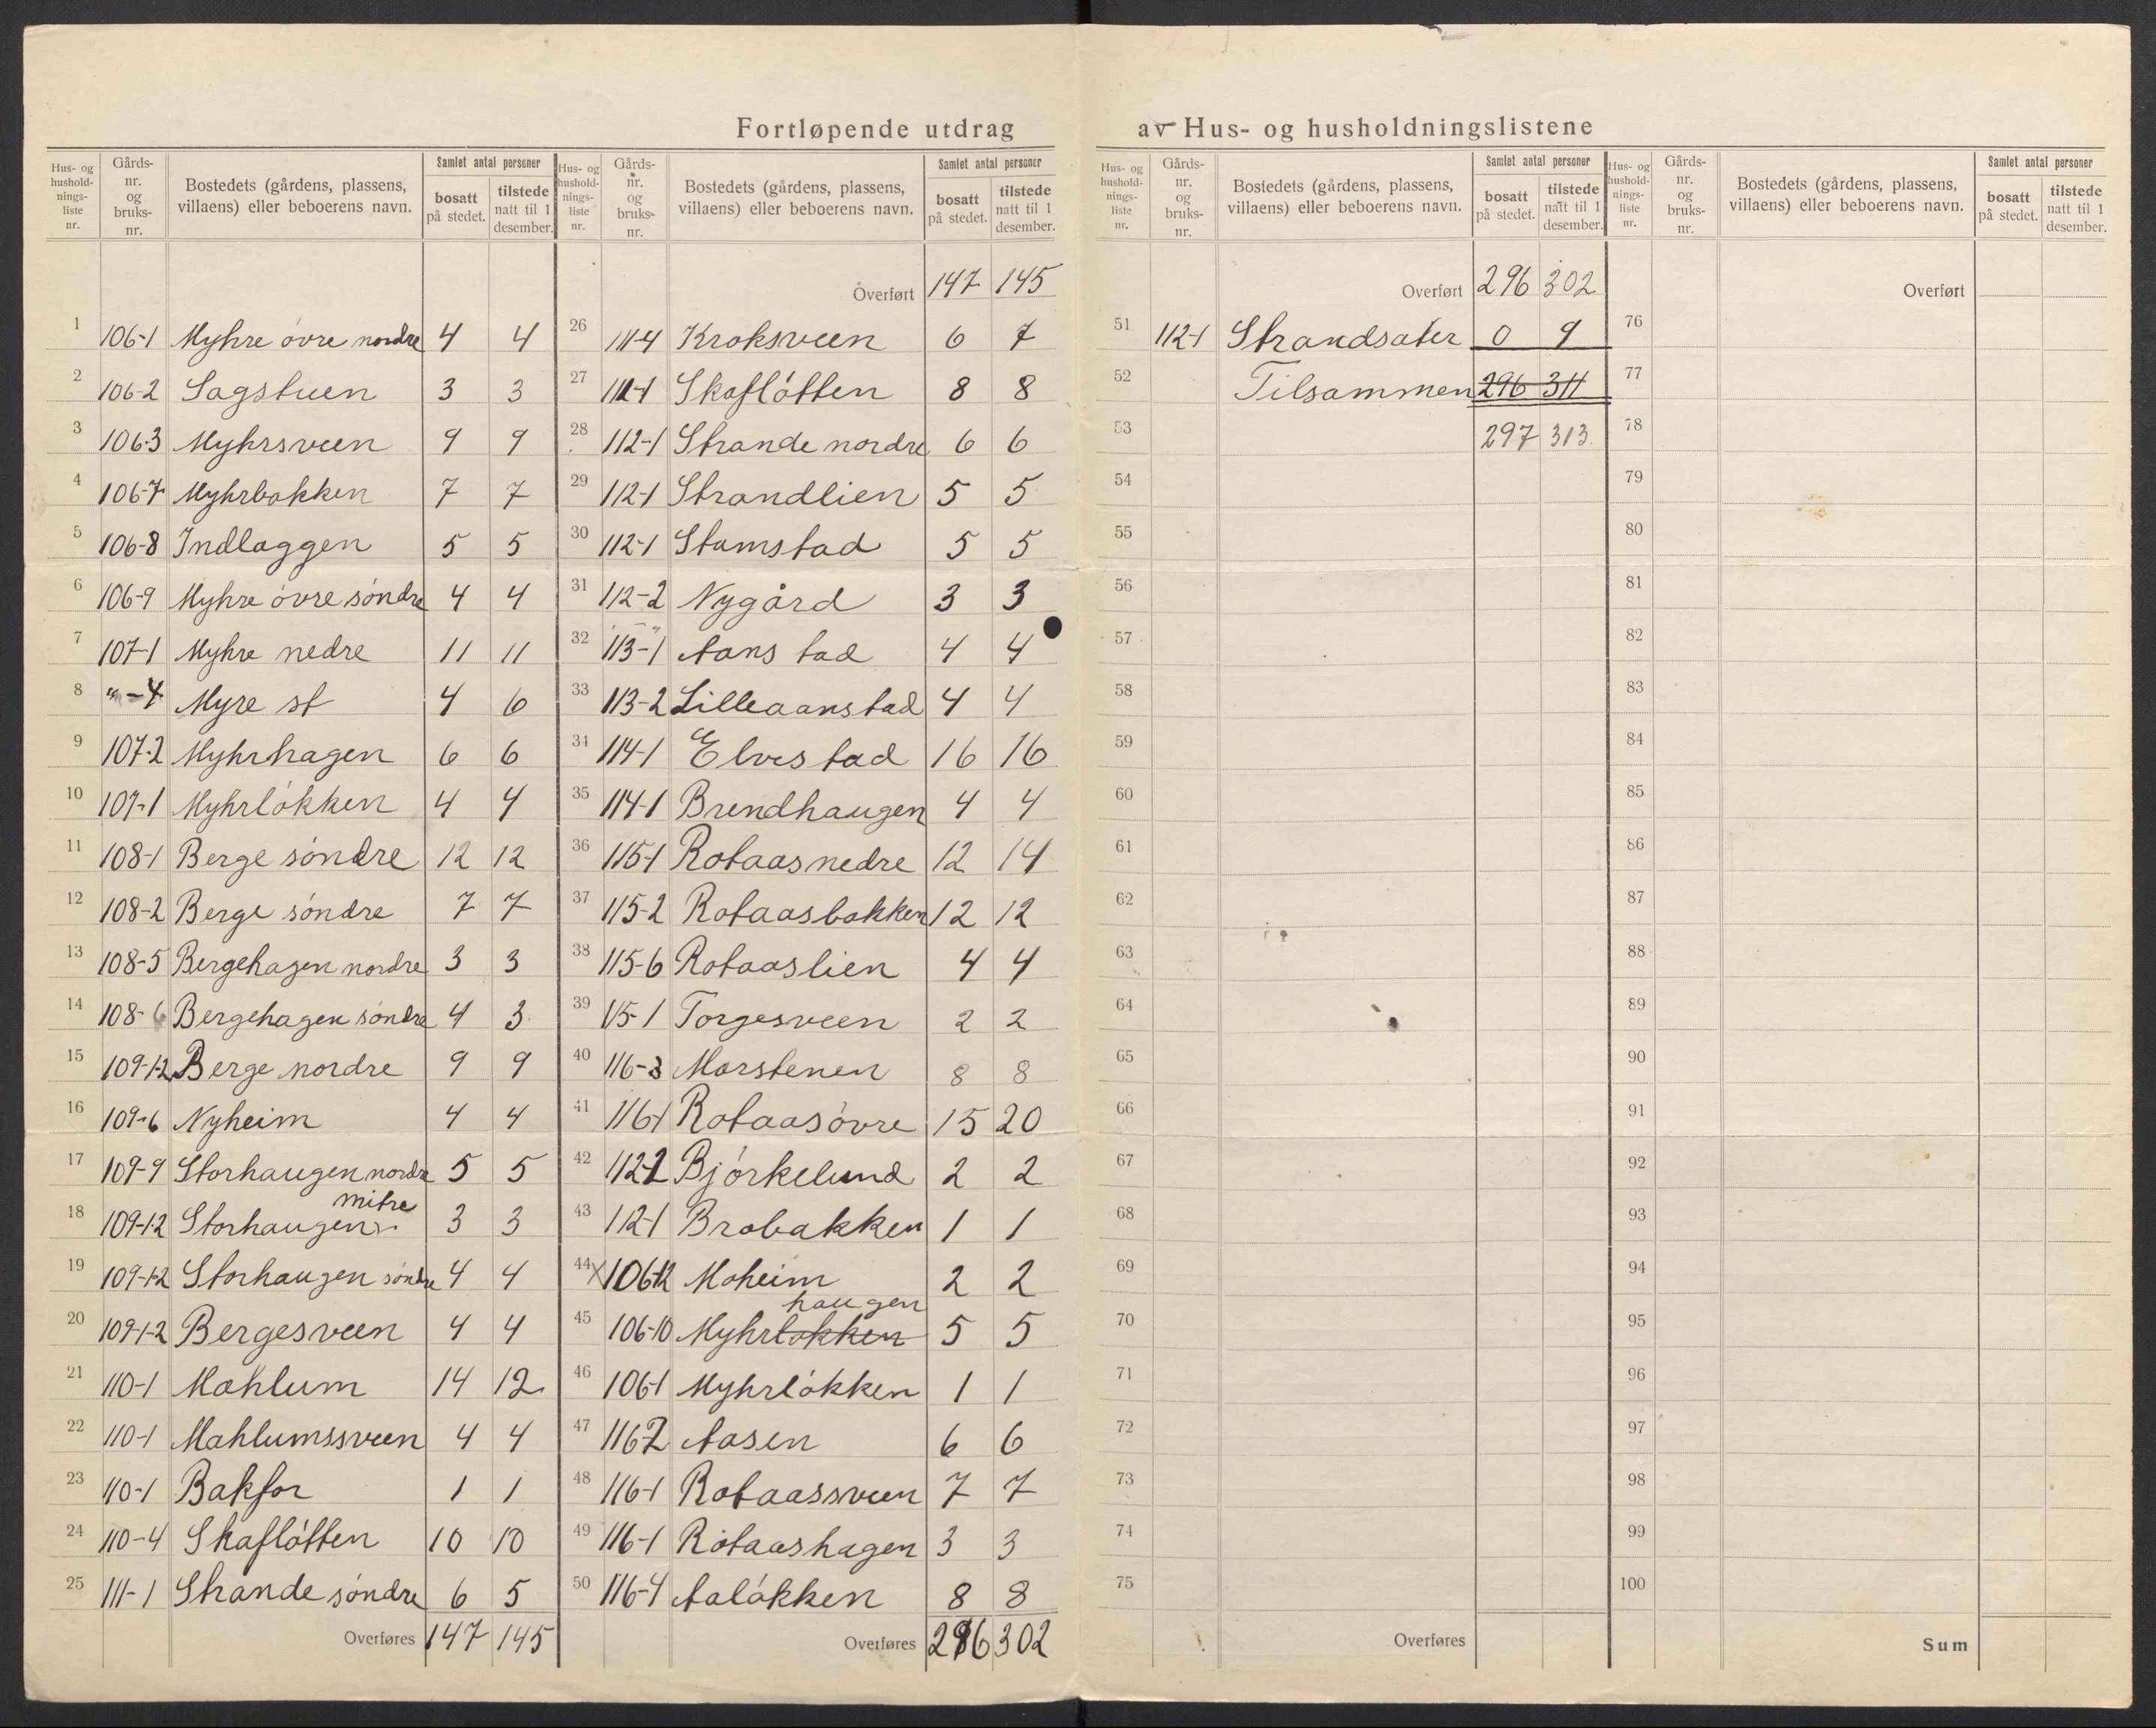 Fortløpende utdrag av Hus- og husholdningslistene
Hus- og husholdnings-liste nr. | Gårds-nr. og bruks-nr. | Bostedets (gårdens, plassens, villaens) eller beboerens navn. | Samlet antal personer | bosatt på stedet. | tilstede natt til 1 desember.
1 106-1 Myhre øvre nordre 4 4
2 106-2 Sagstuen 3 3
3 106-3 Myhrsveen 9 9
4 106-7 Myhrbakken 7 7
5 106-8 Indlaggen 5 5
6 106-9 Myhre øvre søndre 4 4
7 107-1 Myhre nedre 11 11
8 "-4 Myre st 4 6
9 107-2 Myhrhagen 6 6
10 107-1 Myhrløkken 4 4
11 108-1 Berge søndre 12 12
12 108-2 Berge søndre 7 7
13 108-5 Bergehagen nordre 3 3
14 108-6 Bergehagen søndre 4 3
15 109-1-2 Berge nordre 9 9
16 109-6 Nyheim 4 4
17 109-9 Storhaugen nordre 5 5
18 109-1-2 Storhaugen mitre 3 3
19 109-1-2 Storhaugen søndre 4 4
20 109-1-2 Bergesveen 4 4
21 110-1 Mæhlum 14 12
22 110-1 Mæhlumssveen 4 4
23 110-1 Bakfor 1 1
24 110-4 Skafløtten 10 10
25 111-1 Strande søndre 6 5
Overføres 147 145
Hus- og husholdnings-liste nr. | Gårds-nr. og bruks-nr. | Bostedets (gårdens, plassens, villaens) eller beboerens navn. | Samlet antal personer | bosatt på stedet. | tilstede natt til 1 desember.
Overført 147 145
26 111-4 Kroksveen 6 7
27 111-1 Skafløtten 8 8
28 112-1 Strande nordre 6 6
29 112-1 Strandlien 5 5
30 112-1 Stamstad 5 5
31 112-2 Nygård 3 3
32 113-1 Aanstad 4 4
33 113-2 Lilleaanstad 4 4
34 114-1 Elvestad 16 16
35 114-1 Brendhaugen 4 4
36 115-1 Rotaas nedre 12 14
37 115-2 Rotaasbakken 12 12
38 115-6 Rotaaslien 4 4
39 115-1 Torgesveen 2 2
40 116-3 Marstenen 8 8
41 116-1 Rotaas øvre 15 20
42 112-2 Bjørkelund 2 2
43 112-1 Brobakken 1 1
44 X 106-12 Moheim 2 2
haugen
45 106-10 Myhrløkken 5 5
46 106-1 Myhrløkken 1 1
47 116-2 Aasen 6 6
48 116-1 Rotaassveen 7 7
49 116-1 Rotaashagen 3 3
50 116-4 Aaløkken 8 8
Overføres 296 302
Hus- og husholdnings-liste nr. | Gårds-nr. og bruks-nr. | Bostedets (gårdens, plassens, villaens) eller beboerens navn. | Samlet antal personer | bosatt på stedet. | tilstede natt til 1 desember.
Overført 296 302
51 112-1 Strandsæter 0 9
52 Tilsammen 296 311
53 297 313
54
55
56
57
58
59
60
61
62
63
64
65
66
67
68
69
70
71
72
73
74
75
Overføres
Hus- og husholdnings-liste nr. | Gårds-nr. og bruks-nr. | Bostedets (gårdens, plassens, villaens) eller beboerens navn. | Samlet antal personer | bosatt på stedet. | tilstede natt til 1 desember.
Overført
76
77
78
79
80
81
82
83
84
85
86
87
88
89
90
91
92
93
94
95
96
97
98
99
100
Sum